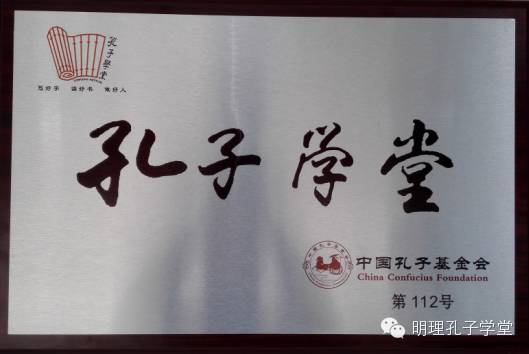 孔子學堂
写好字 读好书 做好人
孔子学堂
中国孔子基金会
China Confucius Foundation
第112号
明理孔子学堂